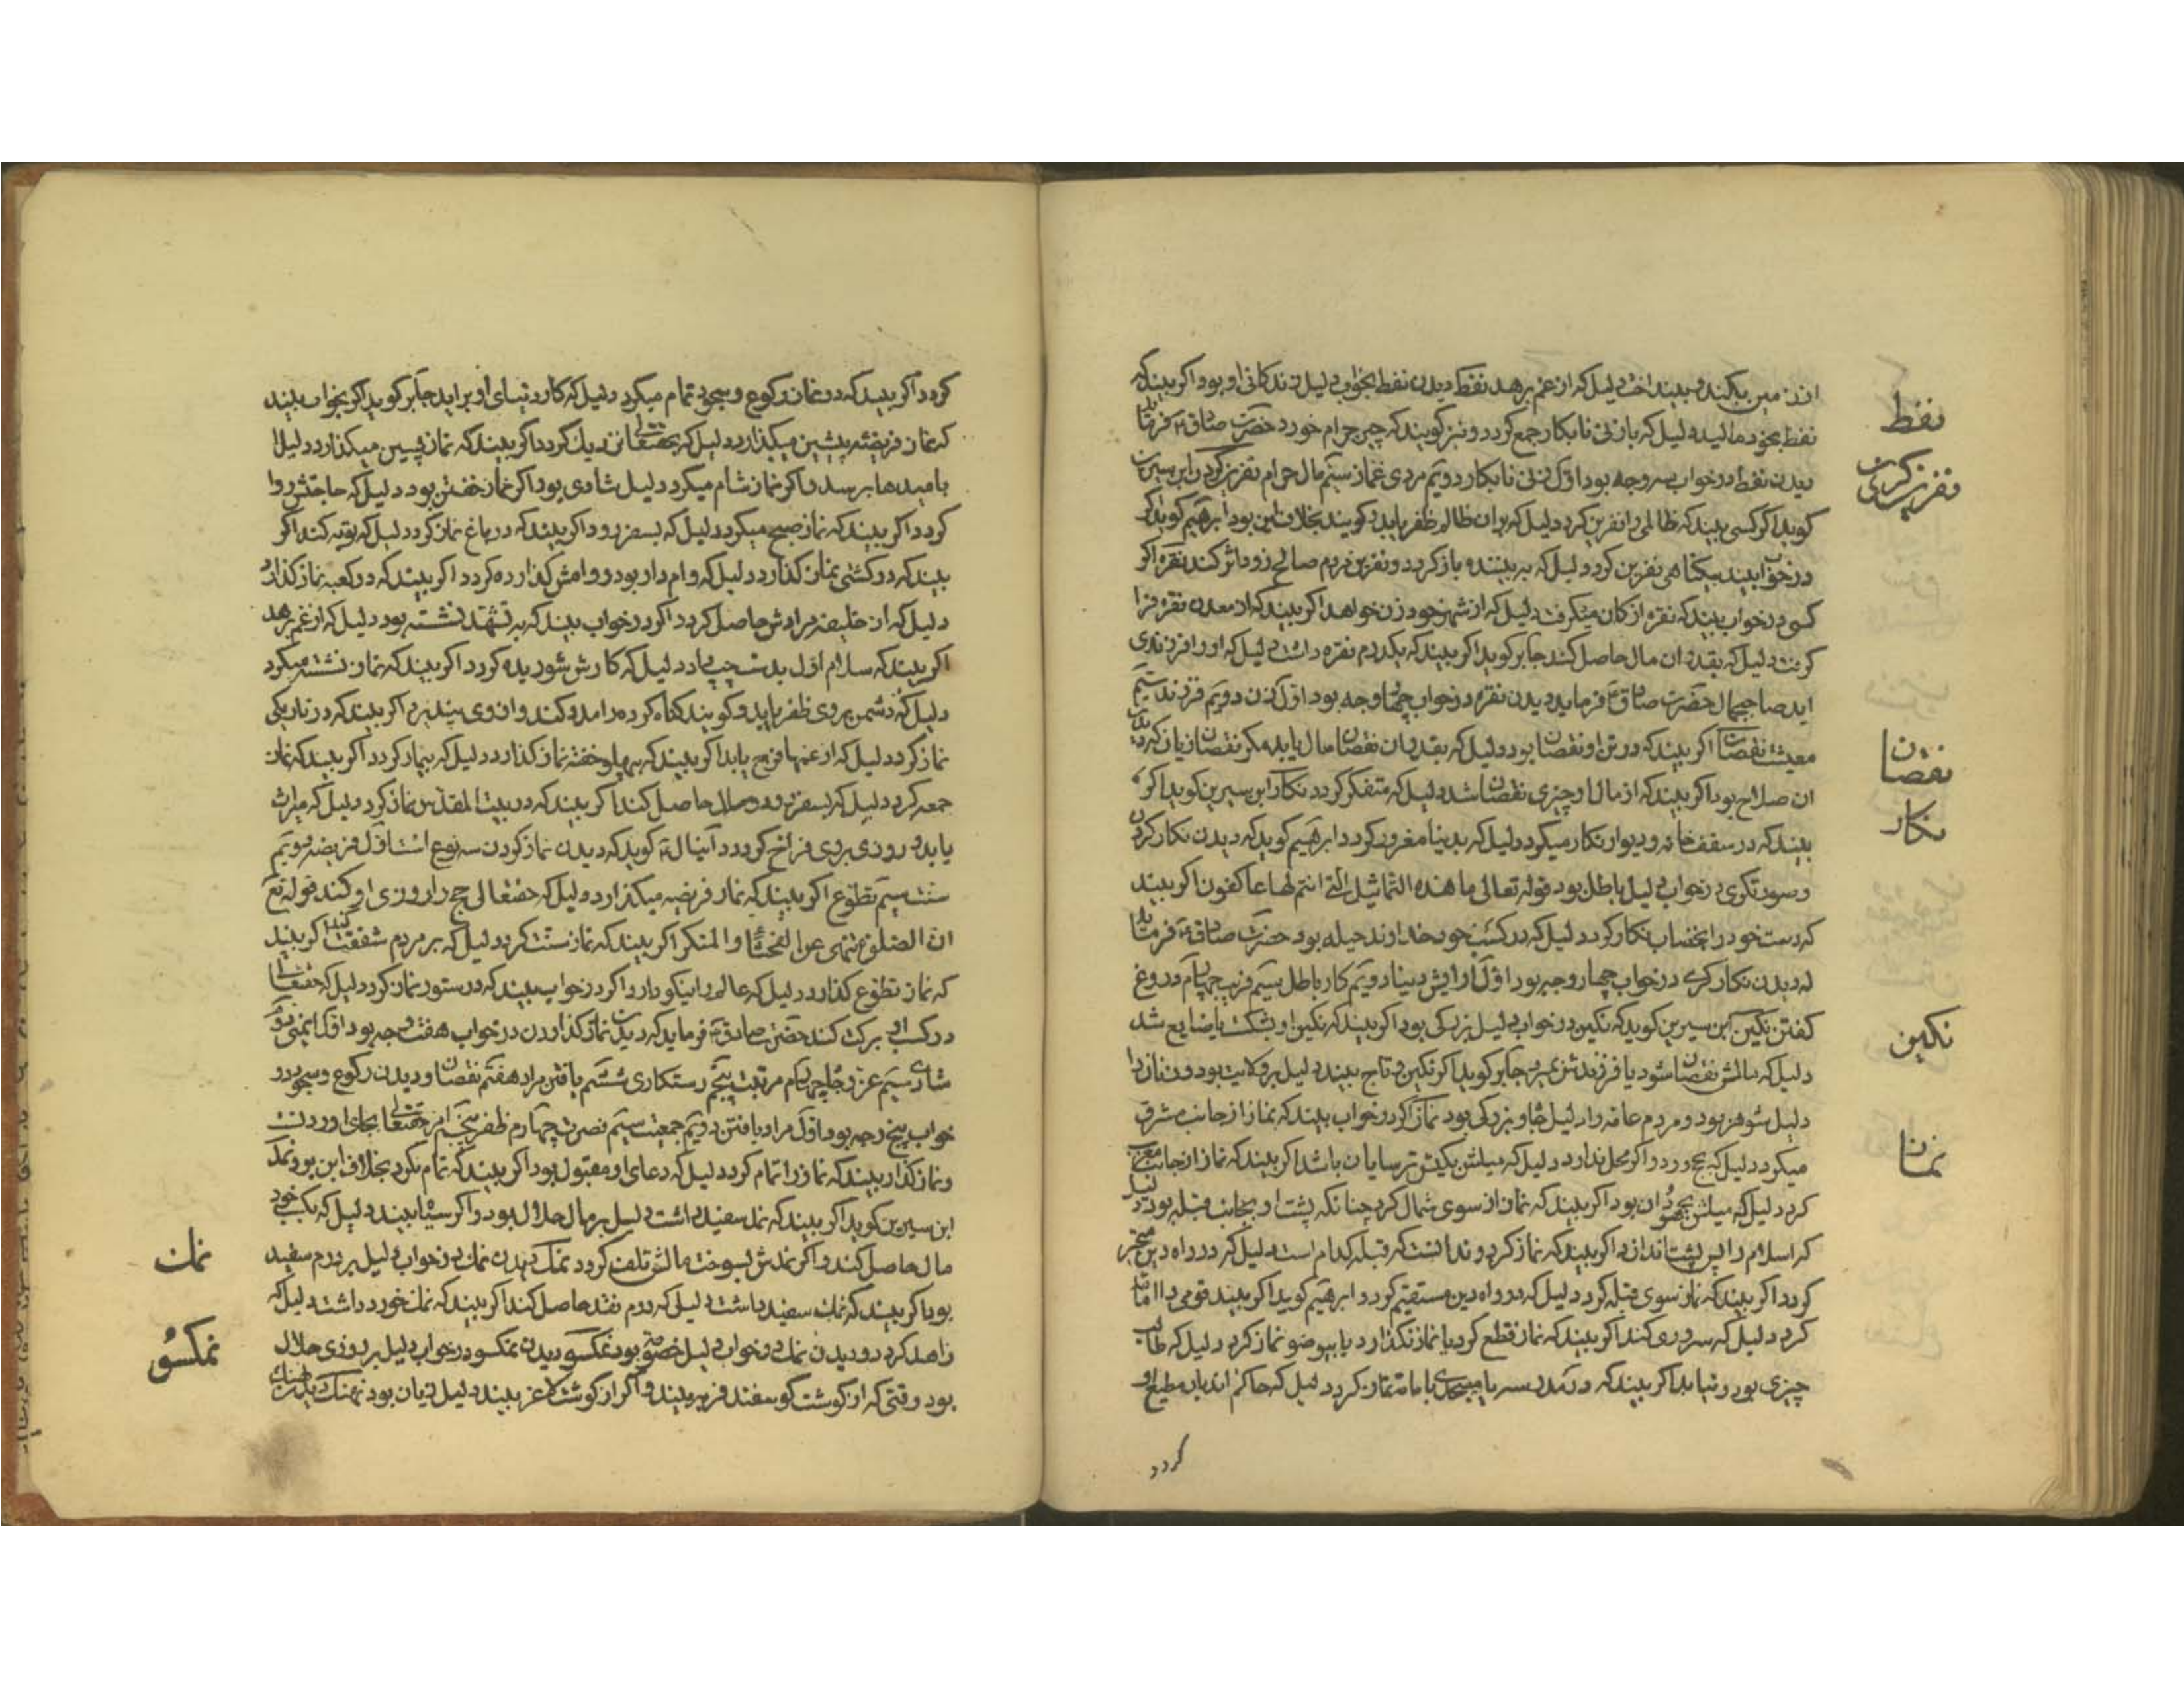 نفط
نفرین کردن
نقصان
نکار
نکین
نماز
از زمین بکند ببیند دلیل که از غم برهد نفط دیدن نفط بخواب دلیل زندکانی او بود اکر بیند که
نفط بخود مالید دلیل که بازنی نابکار جمع کردد و نیز کویند که چیز حرام خورد حضرت صادق فرماید
دیدن نفط در خواب سه وجه بود اول زنی نابکار دویم مردی غماز سیم مال حرام نفرین کردن ابن سیرین
کوید اکر کسی بیند که ظالمی را نفرین کرد دلیل که بران ظالم ظفر یابد و کویند بخلاف این بود ابرهیم کوید اکر
در خواب بیند بیکناهی نفرین کرد دلیل که به بیننده باز کردد و نفرین مردم صالح زود اثر کند نقره اکر
کسی در خواب بیند که نقره از کان میکرفت دلیل که از شهر خود زن خواهد اکر بیند که از معدن نقره فرا
کرفت دلیل که بقدر ان مال حاصل کند جابر کوید اکر بیند که یکدرم نقره داشت دلیل که او را فرزندی
اید صاحب جمال حضرت صادق فرماید دیدن نقره در خواب چهار وجه بود اول زن دویم فرزند سیم
معیشت نقصان اکر بیند که در تن او نقصان بود دلیل که بقدر ان نقصان مال یابد مکر نقصان زیان که در
ان صلاح بود اکر بیند که از مال او چیزی نقصان شد دلیل که متفکر کردد نکار ابن سیرین کوید اکر
بیند که در سقف خانه و دیوار نکار میکرد دلیل که بدنیا مغرور کردد ابرهیم کوید که دیدن نکار کردن
و صورتکری در خواب دلیل باطل بود قوله تعالی ما هذه التماثیل التی انتم لها عاکفون اکر بیند
که دست خود را بخضاب نکار کرد دلیل که در کسب خود خداوند حیله بود حضرت صادق فرماید
که دیدن نکار کری در خواب چهار وجه بود اول ارایش دنیا دویم کار باطل سیم فریب چهارم دروغ
کفتن نکین ابن سیرین کوید که نکین در خواب دلیل بزرکی بود اکر بیند که نکین او بشکست یا ضایع شد
دلیل که مالش نقصان شود یا فرزندش بمیرد جابر کوید اکر نکین در تاج بیند دلیل بر ولایت بود و زنان را
دلیل شوهر بود و مردم عامه را دلیل جاه و بزرکی بود نماز اکر در خواب بیند که نماز از جانب مشرق
میکرد دلیل که بحج رود و اکر محل ندارد دلیل که میلش بکیش ترسایان باشد اکر بیند که نماز از جانب مغرب
کرد دلیل که میلش بجهودان بود اکر بیند که نماز از سوی شمال کرد چنانکه پشت او بجانب قبله بود دلیل
که اسلام را پس پشت اندازد اکر بیند که نماز کرد و ندانست که قبله کدام است دلیل که در راه دین متحیر
کردد اکر بیند که نماز سوی قبله کرد دلیل که در راه دین مستقیم کردد ابرهیم کوید اکر بیند قومی را امامت
کرد دلیل که سروری کند اکر بیند که نماز قطع کرد یا نماز نکذارد یا بیوضو نماز کرد دلیل که طالب
چیزی بود و نیابد اکر بیند که در مدرسه یا مسجدی با امامت نماز کرد دلیل که حاکم ان دیار مطیع او
کردد
کردد اکر بیند که در نماز رکوع و سجود تمام میکرد دلیل که کار دنیای او براید جابر کوید اکر بخواب بیند
که نماز فریضه پیشین میکذارد دلیل که بحقتعالی نزدیک کردد اکر بیند که نماز پسین میکذارد دلیل
بامیدها برسد و اکر نماز شام میکرد دلیل شادی بود اکر نماز خفتن بود دلیل که حاجتش روا
کردد اکر بیند که نماز صبح میکرد دلیل که بسفر رود اکر بیند که در باغ نماز کرد دلیل که توبه کند اکر
بیند که در کشتی نماز کذارد دلیل که وام دار بود و وامش کذارده کردد اکر بیند که در کعبه نماز کذارد
دلیل که از خلیفه مرادش حاصل کردد اکر در خواب بیند که به تشهد نشسته بود دلیل که از غم برهد
اکر بیند که سلام اول بدست چپ داد دلیل که کارش شوریده کردد اکر بیند که نماز نشسته میکرد
دلیل که دشمن بر وی ظفر یابد و کویند کناه کرده را مدد کند و از وی پند پذیرد اکر بیند که در تاریکی
نماز کرد دلیل که از غمها فرج یابد اکر بیند که بپهلو خفته نماز کذارد دلیل که بیمار کردد اکر بیند که نماز
جمعه کرد دلیل که بسفر رود و مال حاصل کند اکر بیند که در بیت المقدس نماز کرد دلیل که میراث
یابد و روزی بر وی فراخ کردد دانیال کوید که دیدن نماز کردن سه نوع است اول فریضه دویم
سنت سیم تطوع اکر بیند که نماز فریضه میکذارد دلیل که حقتعالی حج را روزی او کند قوله تع
ان الصلوة تنهی عن الفحشاء والمنکر اکر بیند که نماز سنت کرد دلیل که بر مردم شفقت کند اکر بیند
که نماز تطوع کذارد دلیل که عالم را نیکو دارد اکر در خواب بیند که در ستور نماز کرد دلیل که حقتعالی
در کسب او برکت کند حضرت صادق فرماید که دیدن نماز کذاردن در خواب هفت وجه بود اول ایمنی دویم
شادی سیم عز و جاه چهارم مرتبت پنجم رستکاری ششم یافتن مراد هفتم نقصان و دیدن رکوع و سجود در
خواب پنج وجه بود اول مراد یافتن دویم جمعیت سیم نصرت چهارم ظفر پنجم امر حقتعالی بجای اوردن
و نماز کذار بیند که نماز را تمام کرد دلیل که دعای او مقبول بود اکر بیند که تمام نکرد بخلاف این بود نمک
ابن سیرین کوید اکر بیند که نمد سفید داشت دلیل بر مال حلال بود و اکر سیاه بیند دلیل که بکسب خود
مال حاصل کند و اکر نمدش بسوخت مالش تلف کردد نمک دیدن نمک در خواب دلیل بر درم سفید
بود اکر بیند که نمک سفید داشت دلیل که درم نقد حاصل کند اکر بیند که نمک خورد داشت دلیل که
زاهد کردد و دیدن نمک در خواب دلیل خصومت بود نمکسو دیدن نمکسو در خواب دلیل بر روزی حلال
بود وقتی که از کوشت کوسفند فربه بیند و اکر از کوشت لاغر بیند دلیل زیان بود نهنک دیدن نهنک
نمک
نمکسو